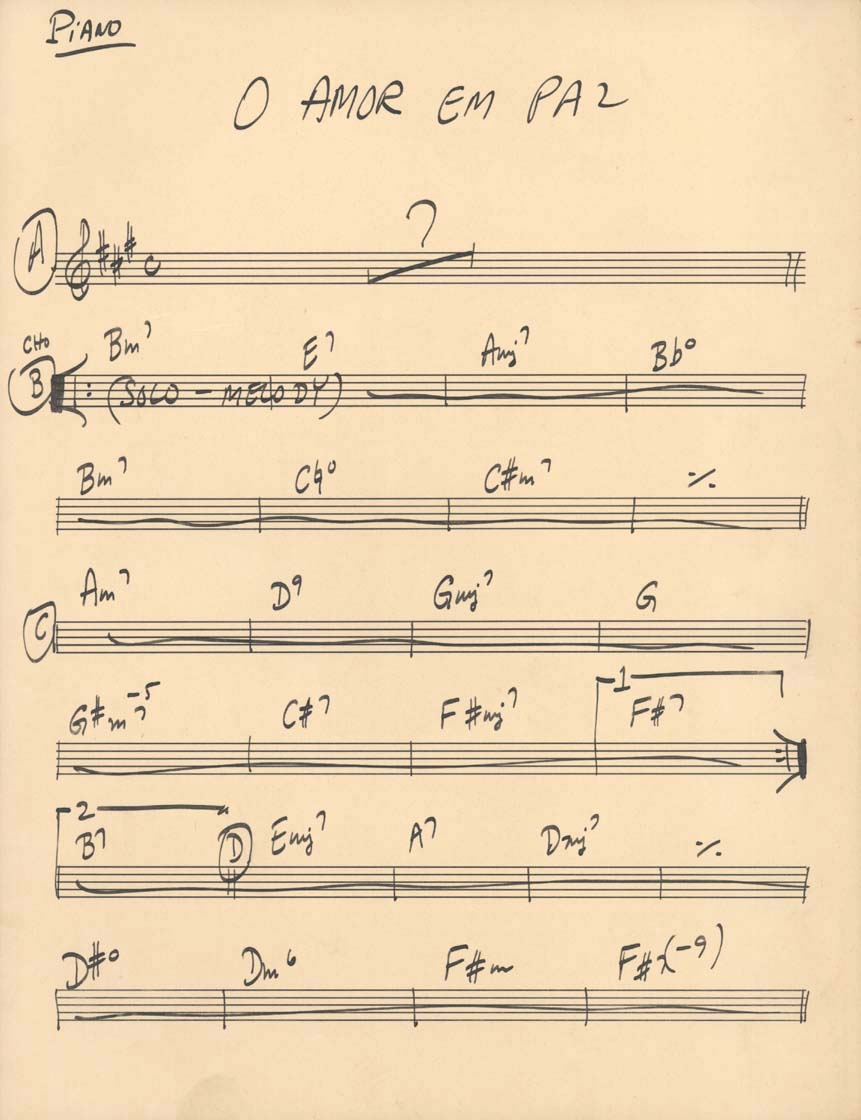 Piano
O AMOR EM PAZ
A ?
CHO
B Bm7 E7 Amj7 Bb°
(SOLO - MELODY)
Bm7 C♮° C#m7 ٪
C Am7 D9 Gmj7 G
G#m7-5 C#7 F#mj7 1 F#7
2 B7 D Emj7 A7 Dmj7 ٪
D#° Dm6 F#m F#7(-9)